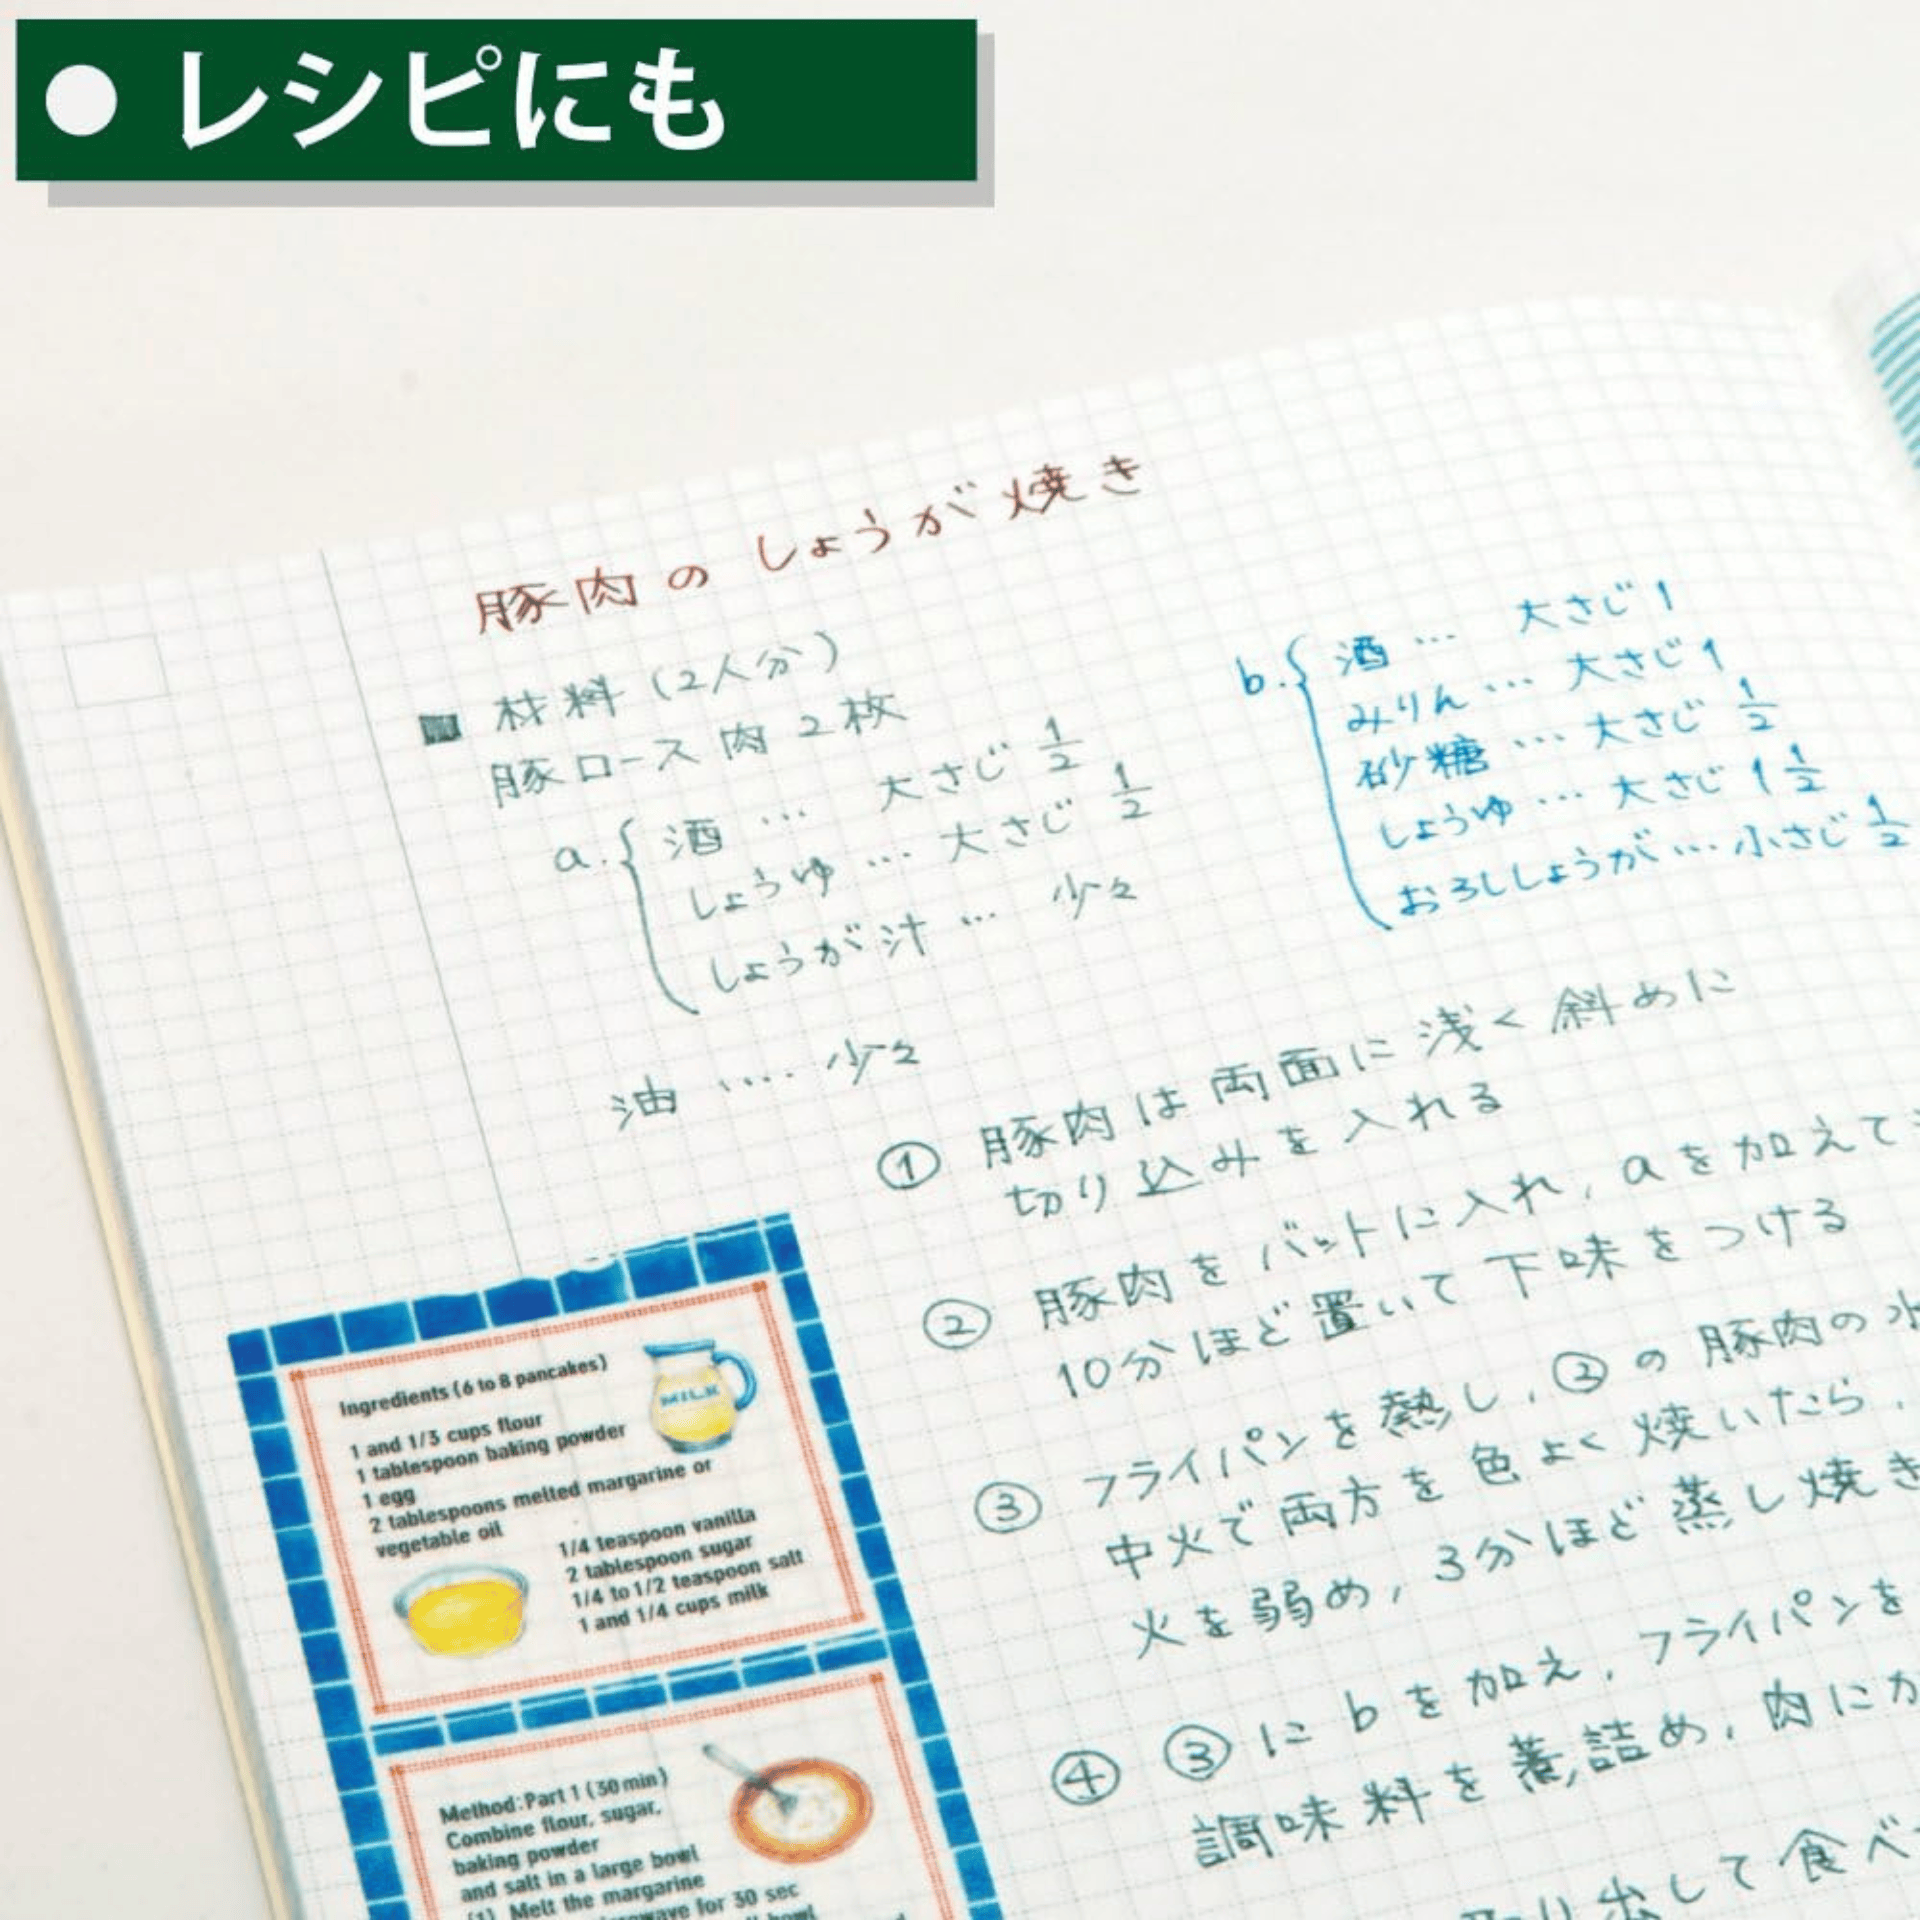 ● レシピにも
豚肉のしょうが焼き
■ 材料(2人分)
豚ロース肉2枚
a. 酒… 大さじ1/2
しょうゆ…大さじ1/2
しょうが汁… 少々
油‥‥少々
b. 酒… 大さじ1
みりん…大さじ1
砂糖…大さじ1/2
しょうゆ…大さじ1 1/2
おろししょうが…小さじ1/2
① 豚肉は両面に浅く斜めに
切り込みを入れる
② 豚肉をバットに入れ,aを加えて
10分ほど置いて下味をつける
③ フライパンを熱し,②の豚肉の水
中火で両方を色よく焼いたら,
火を弱め,3分ほど蒸し焼き
④ ③にbを加え,フライパンを
調味料を煮詰め,肉にか
取り出して食べ
Ingredients (6 to 8 pancakes)
1 and 1/3 cups flour
1 tablespoon baking powder
1 egg
2 tablespoons melted margarine or
vegetable oil
1/4 teaspoon vanilla
2 tablespoon sugar
1/4 to 1/2 teaspoon salt
1 and 1/4 cups milk
MILK
Method:Part 1 (30 min)
Combine flour, sugar,
baking powder
and salt in a large bowl
(1) Melt the margarine
for 30 sec
bowl